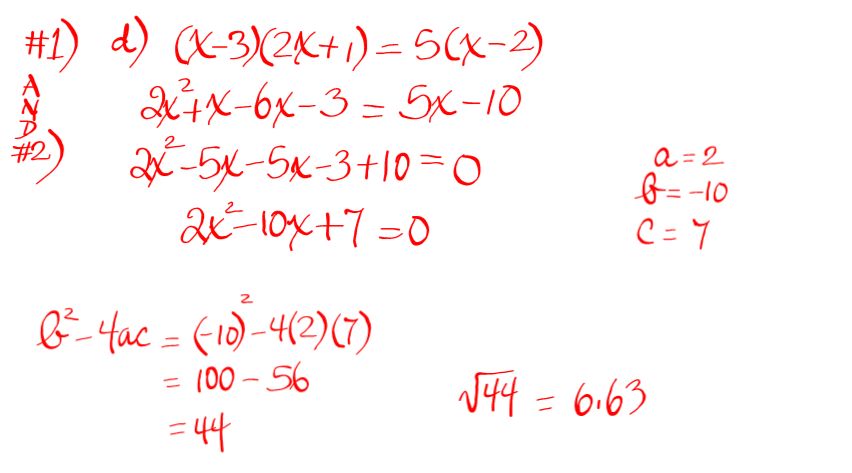 #1) d) (x-3)(2x+1) = 5(x-2)
AND
#2)
2x²+x-6x-3 = 5x-10
2x²-5x-5x-3+10=0
2x²-10x+7=0
a=2
b=-10
c=7
b²-4ac = (-10)²-4(2)(7)
= 100-56
=44
√44 = 6.63